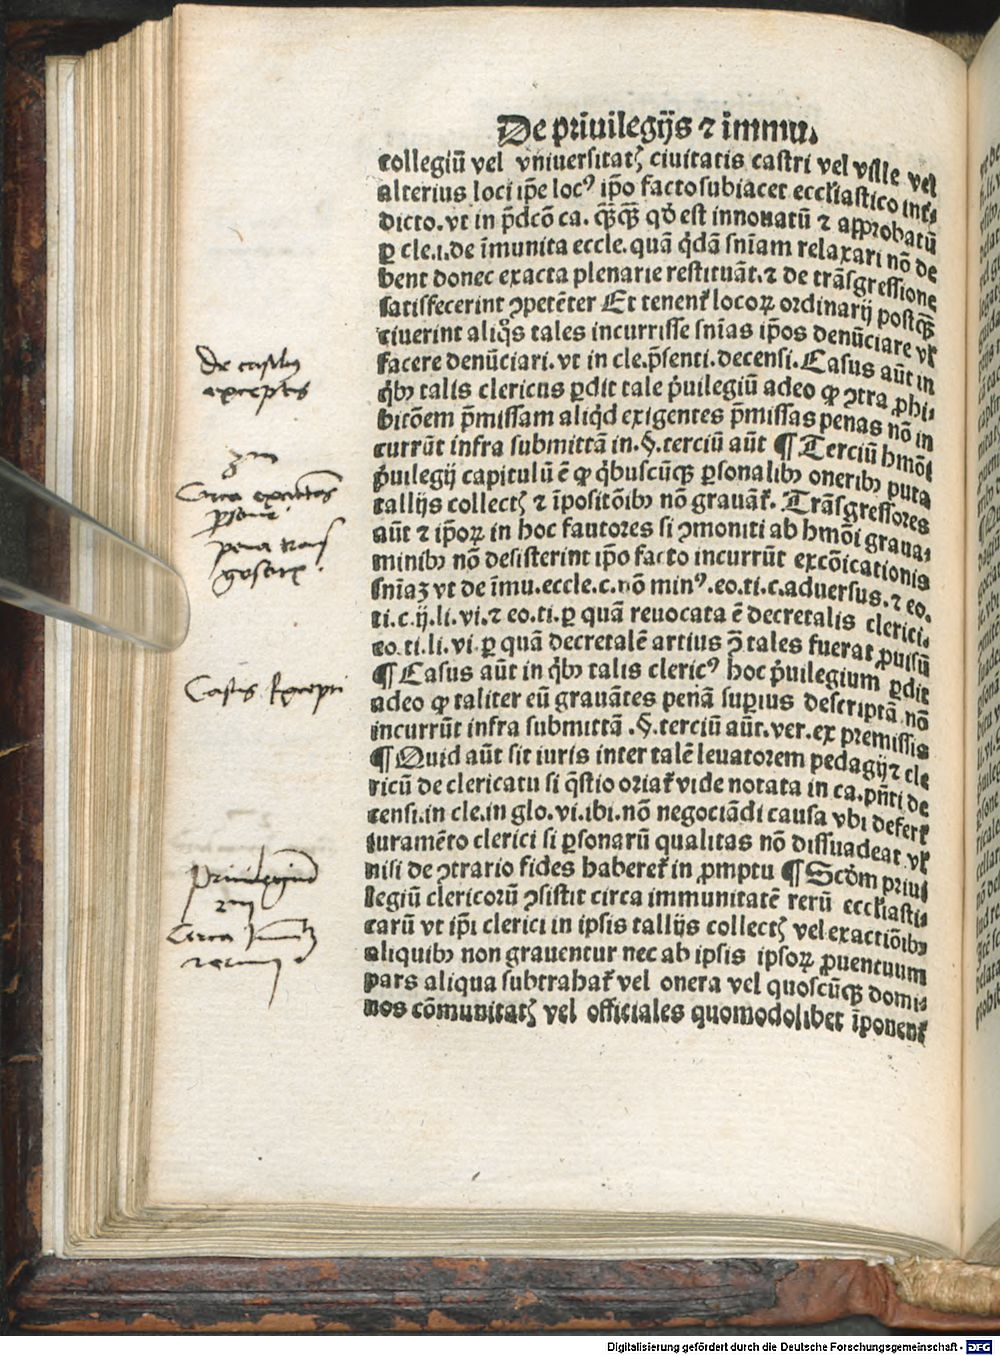 De priuilegijs ⁊ immu.
collegiū vel vniuersitatꝭ ciuitatis castri vel ville vel
alterius loci ip̄e locꝰ ip̄o facto subiacet eccl̄iastico int̄-
dicto. vt in p̄dcō ca. qꝫ̄qꝫ̄ qḋ est innouatū ⁊ approbatū
ꝑ cle.i.de īmunita eccle. quā q̇dā sn̄iam relaxari nō de
bent donec exacta plenarie restituāt.⁊ de trāsgressione
satisfecerint ꝯpetēter Et tenent̄ locoꝝ ordinarij postqꝫ̄
sciuerint aliq̊s tales incurrisse sn̄ias ip̄os denūciare vl̄
facere denūciari. vt in cle.p̄senti.decensi. Casus aūt in
q̇bꝫ talis clericus ꝑdit tale ṗuilegiū adeo ꝙ ꝯtra ꝓhi-
bitōem p̄missam aliq̇d exigentes p̄missas penas nō in
currūt infra submittā in.§.terciū aūt ¶ Terciū hmōi
ṗuilegij capitulū ē ꝙ q̇buscūqꝫ ꝑsonalibꝫ oneribꝫ puta
tallijs collectꝭ ⁊ īpositōibꝫ nō grauāt̄. Trāsgressores
aūt ⁊ ip̄oꝝ in hoc fautores si ꝯmoniti ab hmōi graua-
minibꝫ nō desisterint ip̄o facto incurrūt excōicationis
sn̄iaꝫ vt de īmu.eccle.c.nō minꝰ.eo.ti.c.aduersus.⁊ eo.
ti.c.ij.li.vi.⁊ eo.ti.ꝑ quā reuocata ē decretalis clerici.
eo.ti.li.vi.ꝑ quā decretalē artius ꝯ̄ tales fuerat ꝓuisū
¶ Casus aūt in q̇bꝫ talis clericꝰ hoc ṗuilegium ꝑdit
adeo ꝙ taliter eū grauātes penā supius descriptā nō
incurrūt infra submittā .§.terciū aūt.ver.ex premissis
¶ Quid aūt sit iuris inter talē leuatorem pedagij ⁊ cle
ricū de clericatu si q̄stio oriat̄ vide notata in ca.pn̄ti de
censi.in cle.in glo.vi.ibi.nō negociādi causa vbi defert̄
iuramēto clerici si ꝑsonarū qualitas nō dissuadeat vl̄
nisi de ꝯtrario fides haberet̄ in ꝓmptu ¶ Scḋm priui
legiū clericorū ꝯsistit circa immunitatē rerū eccl̄iasti-
carū vt ip̄i clerici in ipsis tallijs collectꝭ vel exactiōibꝫ
aliquibꝫ non grauentur nec ab ipsis ipsoꝝ ꝓuentuum
pars aliqua subtrahat̄ vel onera vel quoscūqꝫ domi-
nos cōmunitatꝭ vel officiales quomodolibet īponent̄
De casibus
exceptis
3m
Circa
pena trans
gssorꝝ.
Casus Excepti
Priuilegiū
2m
Circa
Digitalisierung gefördert durch die Deutsche Forschungsgemeinschaft - DFG